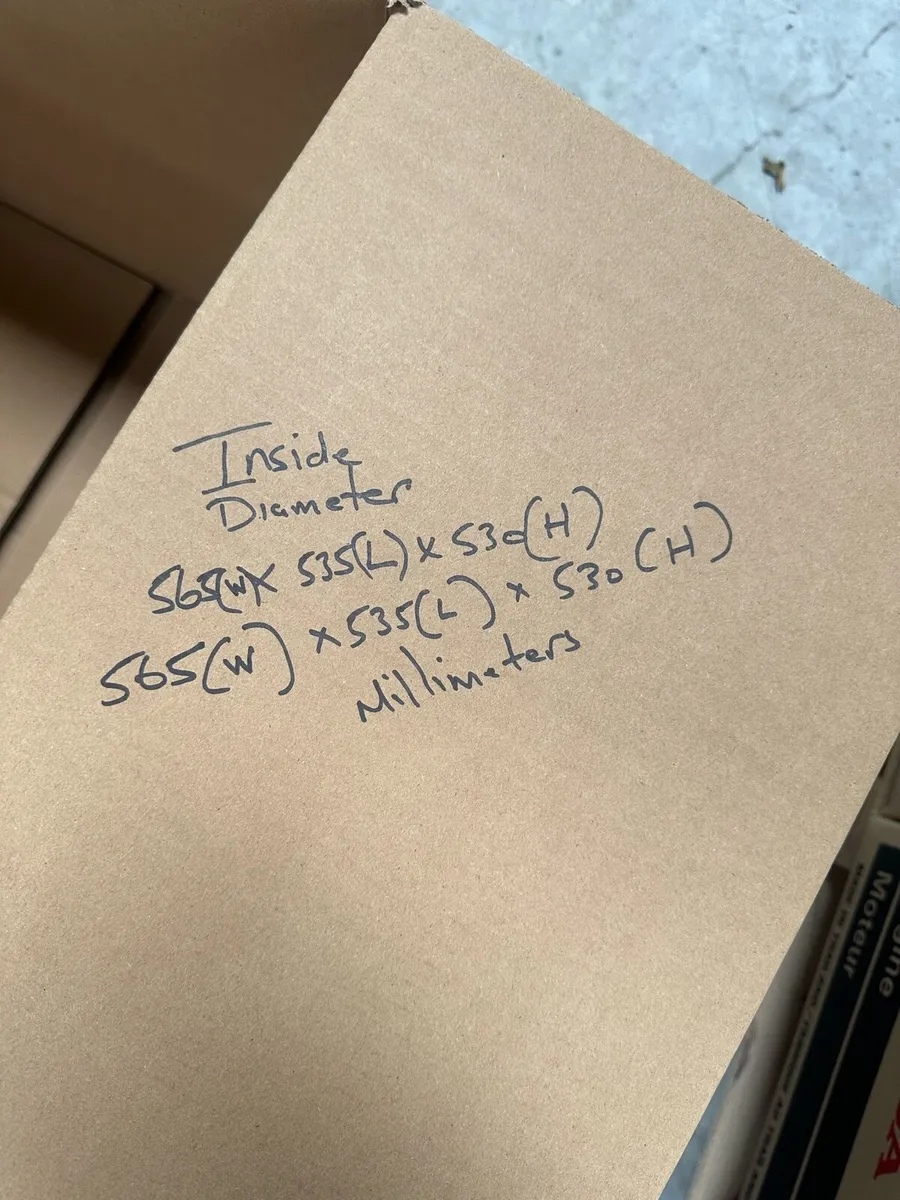 Inside
Diameter
565(W)x 535(L) x 530(H)
565(W) x 535(L) x 530 (H)
Millimeters
Moteur